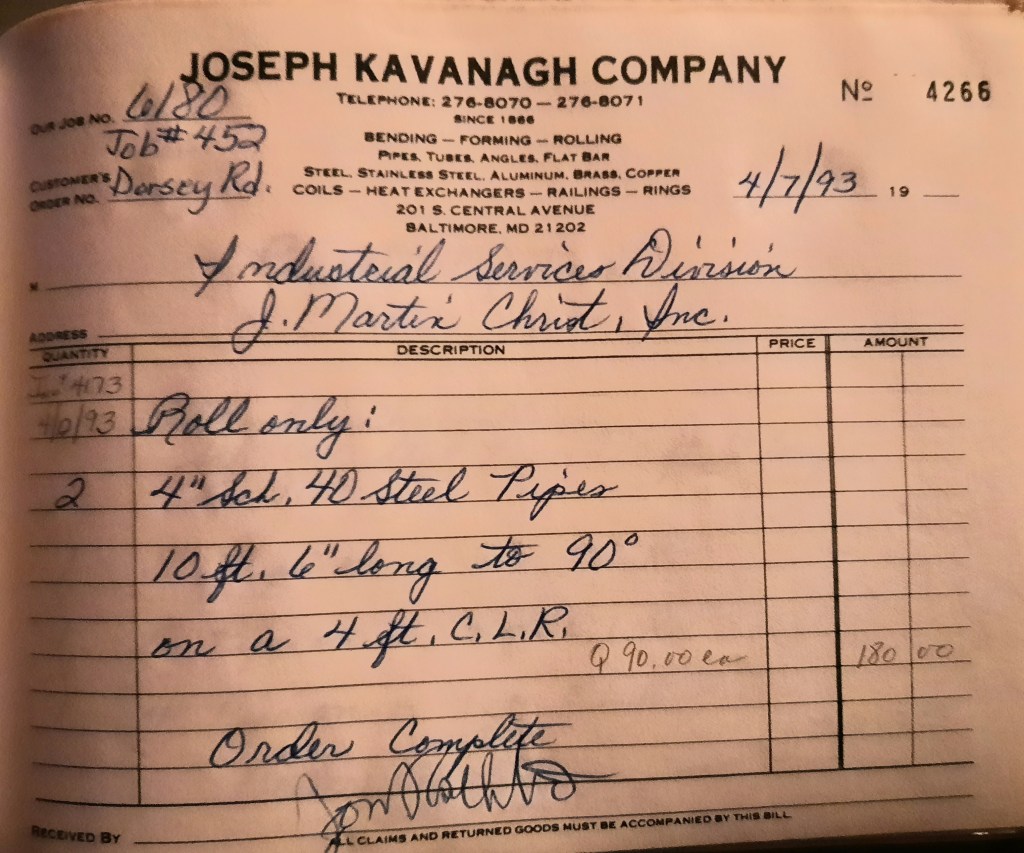 JOSEPH KAVANAGH COMPANY
TELEPHONE: 276-8070 — 276-8071
Nº 4266
SINCE 1866
OUR JOB NO. 6180
BENDING — FORMING — ROLLING
Job # 452
PIPES, TUBES, ANGLES, FLAT BAR
STEEL, STAINLESS STEEL, ALUMINUM, BRASS, COPPER
CUSTOMER'S ORDER NO. Dorsey Rd.
COILS — HEAT EXCHANGERS — RAILINGS — RINGS
4/7/93 19
201 S. CENTRAL AVENUE
BALTIMORE, MD 21202
M Industrial Services Division
ADDRESS J. Martin Christ, Inc.
QUANTITY DESCRIPTION PRICE AMOUNT
4173
Roll only:
2 4" Sch. 40 Steel Pipes
10 ft. 6" long to 90°
on a 4 ft. C.L.R.
90.00 ea 180 00
Order Complete
RECEIVED BY
ALL CLAIMS AND RETURNED GOODS MUST BE ACCOMPANIED BY THIS BILL